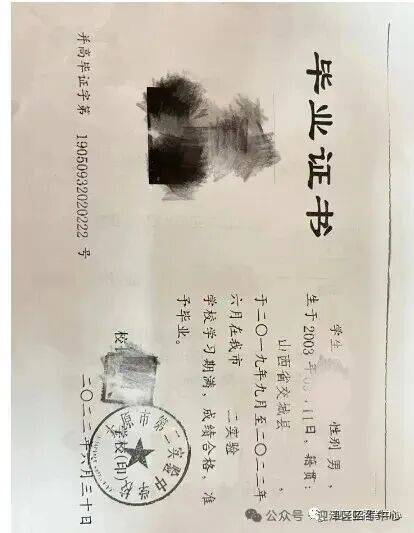 毕业证书
学生 性别 男，
生于 2003 年 11日，籍贯：
山西省交城县，
于二〇一九年九月至二〇二二年
六月在我市 二实验
学校学习期满，成绩合格，准
予毕业。
校
学校（印）
原市第二实验中学
二〇二二年六月三十日
并高毕证字第 19050932020222 号
公众号